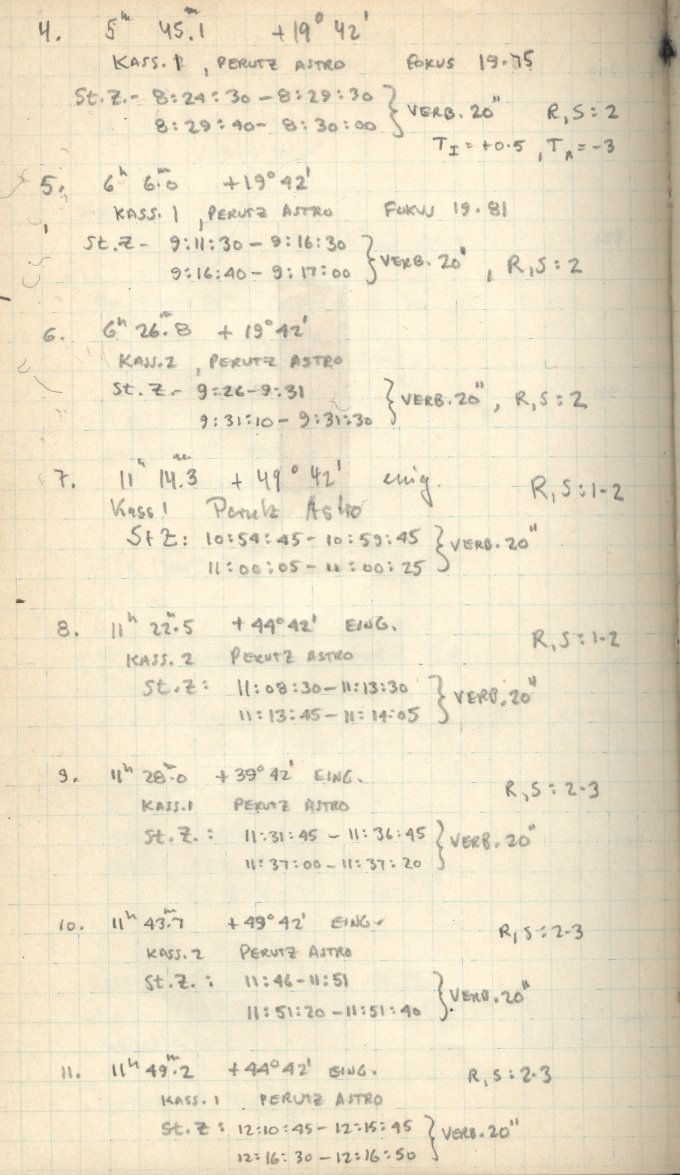 4. 5ʰ 45.ᵐ1 +19° 42'
KASS. 1, PERUTZ ASTRO FOKUS 19.75
St.Z.- 8:24:30 - 8:29:30 } VERB. 20" R,S:2
8:29:40 - 8:30:00 T_I = +0.5, T_A = -3
5. 6ʰ 6.ᵐ0 +19° 42'
KASS. 1, PERUTZ ASTRO FOKUS 19.81
St.Z- 9:11:30 - 9:16:30 } VERB. 20", R,S:2
9:16:40 - 9:17:00
6. 6ʰ 26.ᵐ8 +19° 42'
KASS.2, PERUTZ ASTRO
St. Z.- 9:26-9:31 } VERB.20", R,S:2
9:31:10 - 9:31:30
7. 11ʰ 14.ᵐ3 +49° 42' eing. R,S:1-2
Kass 1 Perutz Astro
StZ: 10:54:45 - 10:59:45 } VERB. 20"
11:00:05 - 11:00:25
8. 11ʰ 22.ᵐ5 +44° 42' EING. R,S:1-2
KASS. 2 PERUTZ ASTRO
St.Z: 11:08:30 - 11:13:30 } VERB. 20"
11:13:45 - 11:14:05
9. 11ʰ 28.ᵐ0 +39° 42' EING. R,S:2-3
KASS.1 PERUTZ ASTRO
St.Z.: 11:31:45 - 11:36:45 } VERB. 20"
11:37:00 - 11:37:20
10. 11ʰ 43.ᵐ7 +49° 42' EING. R,S:2-3
KASS. 2 PERUTZ ASTRO
St.Z.: 11:46-11:51 } VERB. 20"
11:51:20 - 11:51:40
11. 11ʰ 49.ᵐ2 +44° 42' EING. R,S:2-3
KASS. 1 PERUTZ ASTRO
St.Z: 12:10:45 - 12:15:45 } VERB. 20"
12:16:30 - 12:16:50